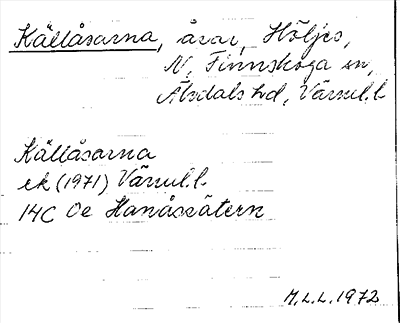 Källåsarna, åsar, Höljes,
N. Finnskoga sn,
Älvdals hd, Värml. l.
Källåsarna
ek (1971) Värml. l.
14C 0e Hanåssätern
M.L.L. 1972